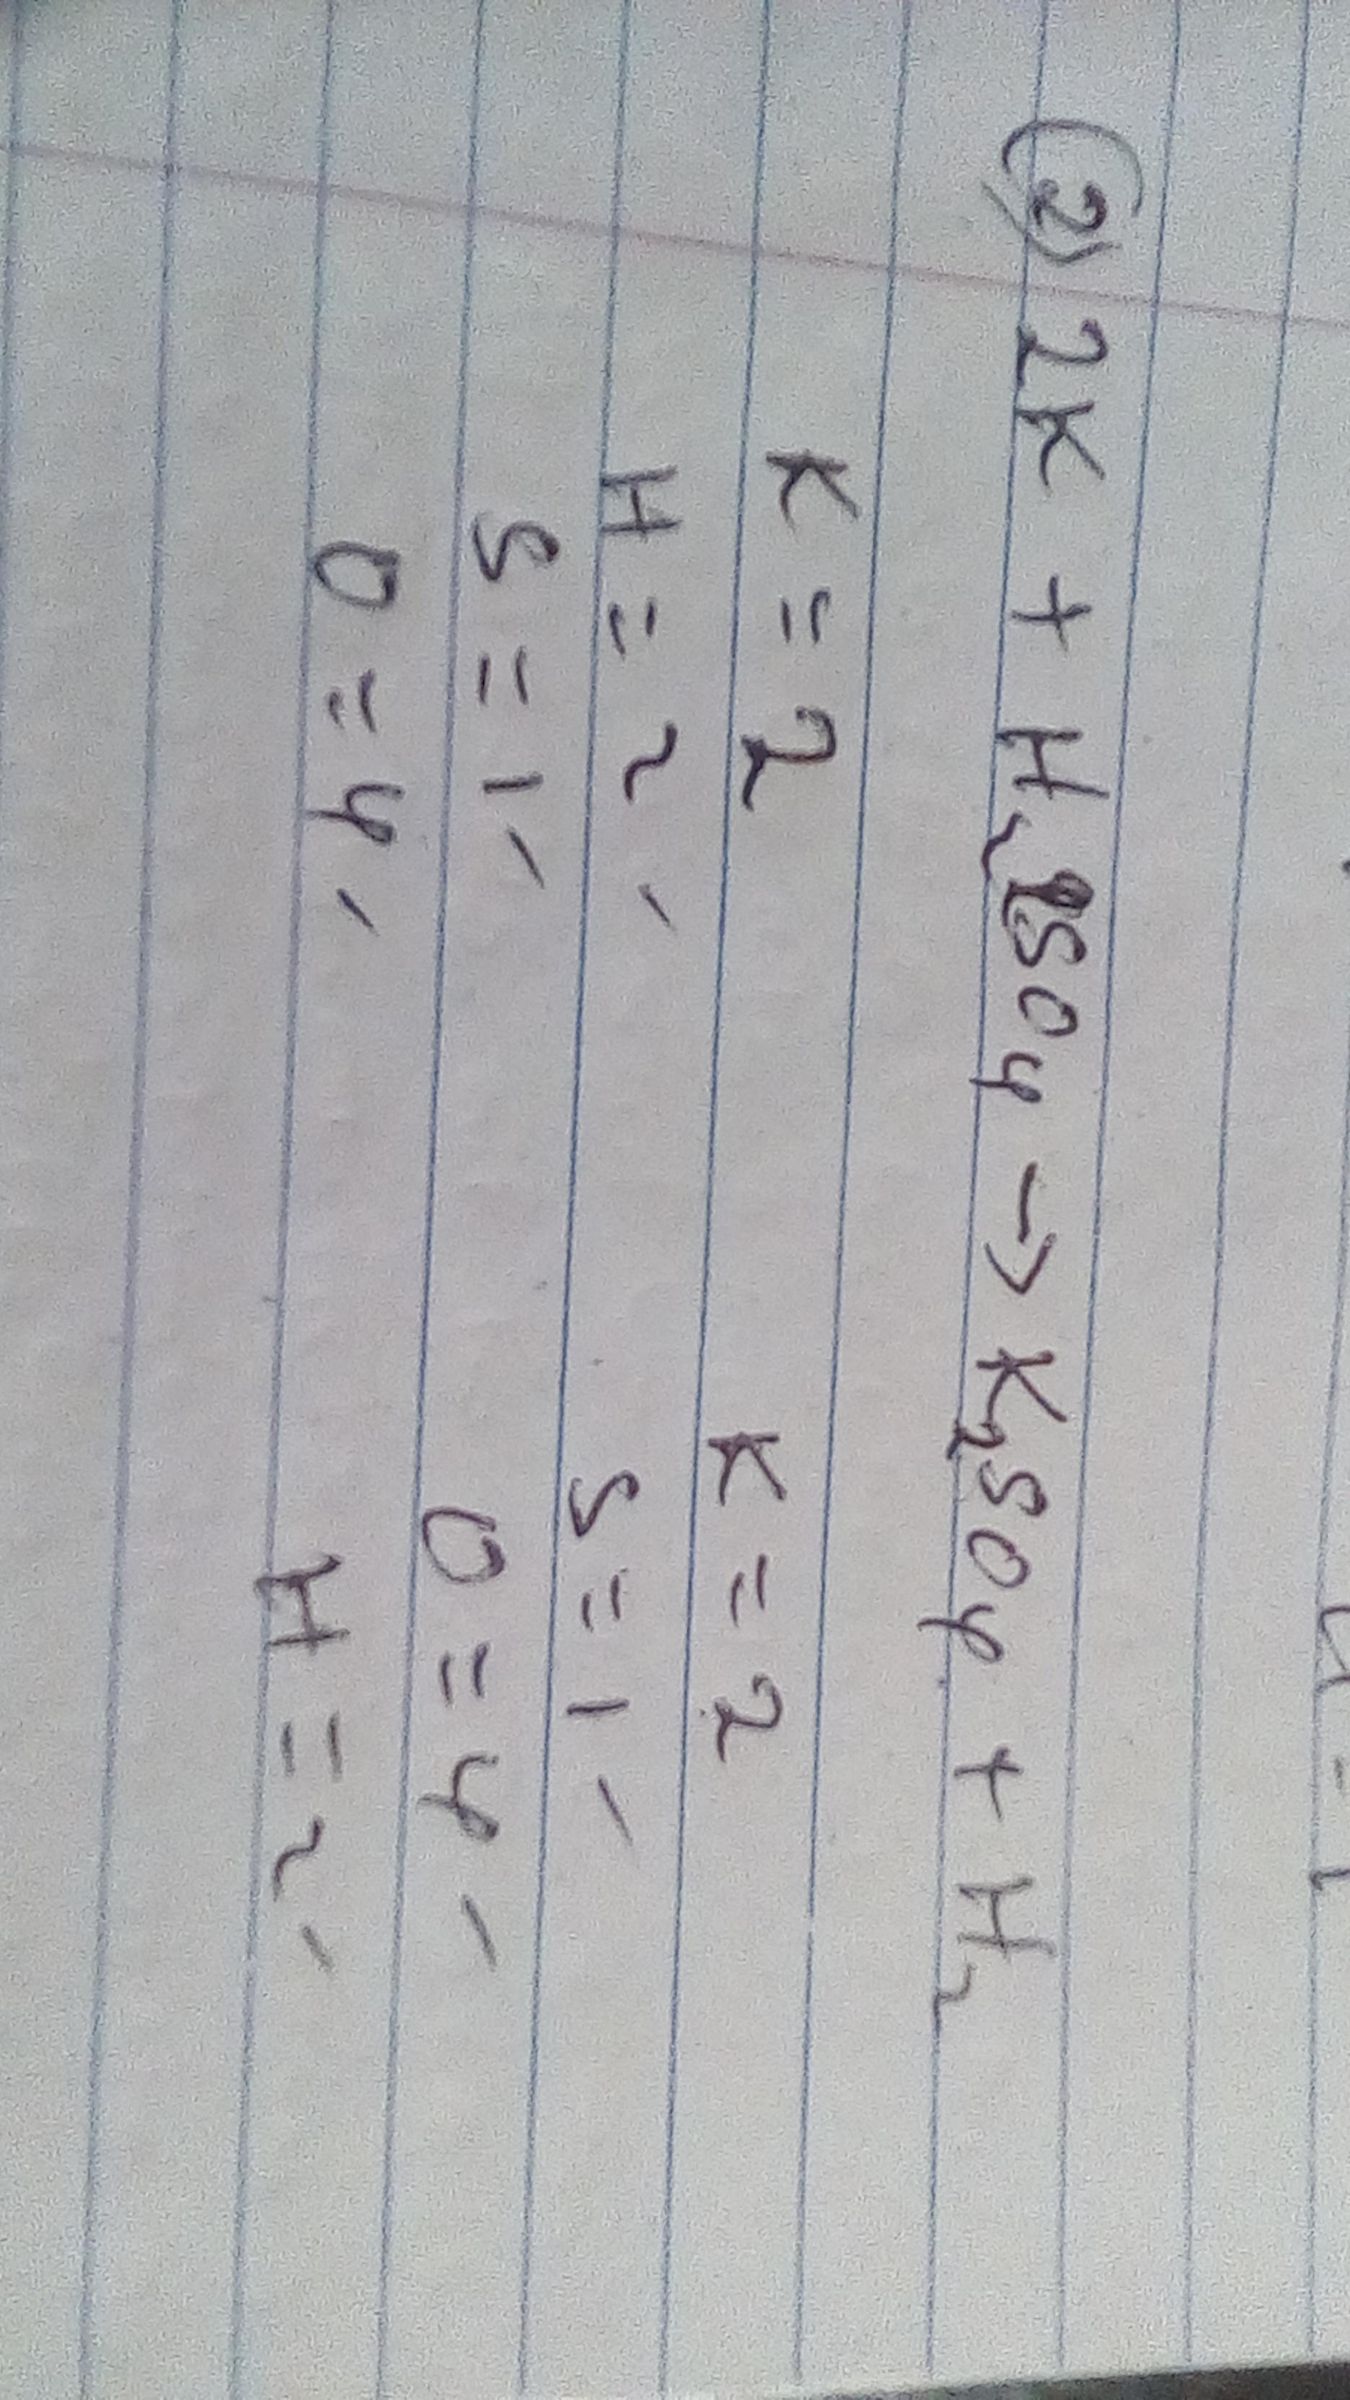 (2) 2K + H₂SO₄ → K₂SO₄ + H₂
K = 2 K = 2
H = 2 ✓ S = 1 ✓
S = 1 ✓ O = 4 ✓
O = 4 ✓ H = 2 ✓